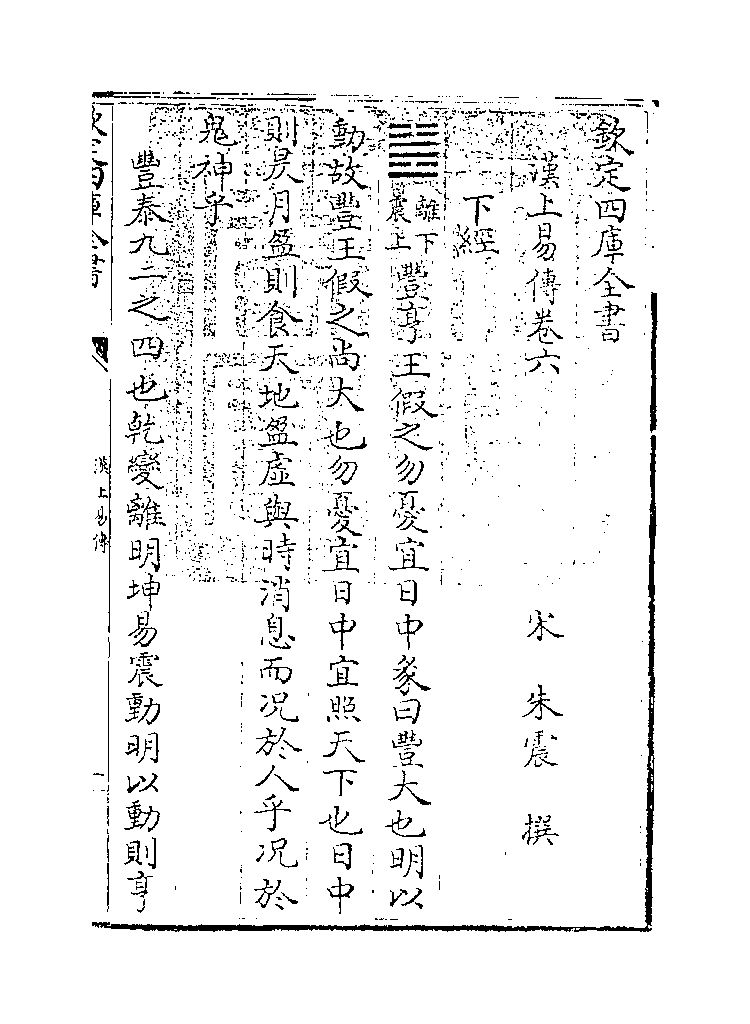 欽定四庫全書
漢上易傳卷六
宋 朱震 撰
下經
䷶離下震上豐亨王假之勿憂宜日中彖曰豐大也明以
動故豐王假之尚大也勿憂宜日中宜照天下也日中
則昃月盈則食天地盈虛與時消息而况於人乎况於
鬼神乎
豐泰九二之四也乾變離明坤易震動明以動則亨
欽定四庫全書
漢上易傳
一